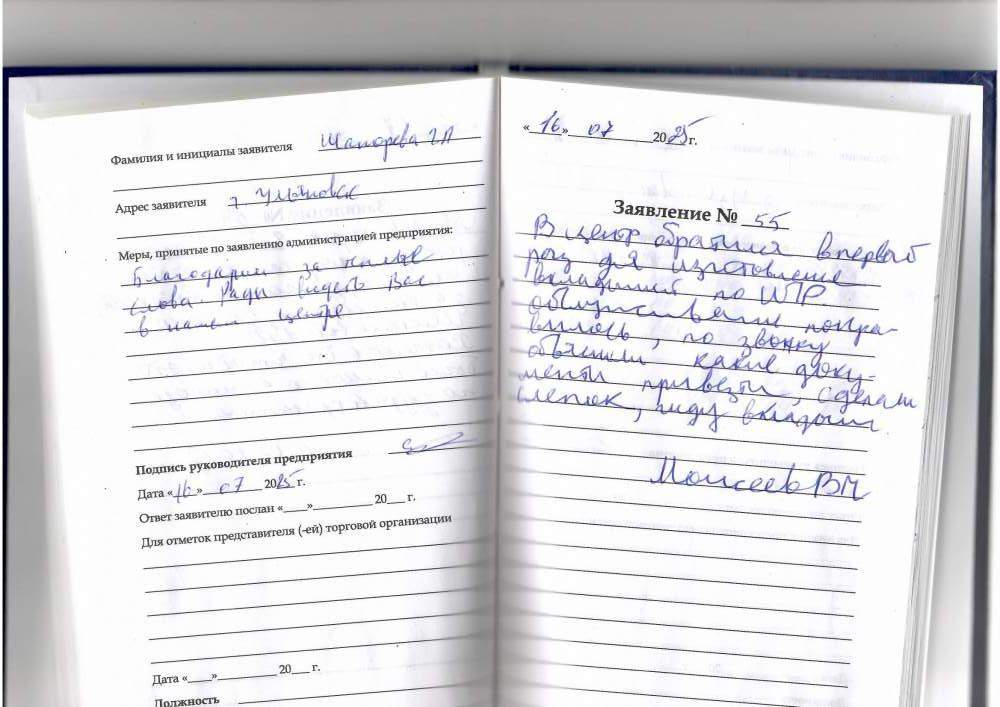 Фамилия и инициалы заявителя Шапорева Г П
Адрес заявителя г. Ульяновск
Меры, принятые по заявлению администрацией предприятия:
Благодарим за теплые
слова. Рады видеть Вас
в нашем центре
Подпись руководителя предприятия
Дата «16» 07 2025 г.
Ответ заявителю послан «___»__________ 20___ г.
Для отметок представителя (-ей) торговой организации
Дата «___»__________ 20___ г.
Должность
«16» 07 2025г.
Заявление № 55
В центр обратился впервый
раз для изготовление
вкладышей по ИПР
обслуживание понра-
вилось, по звонку
объяснили какие доку-
менты привезти, сделали
слепок, жду вкладыши.
Моисеев ВМ